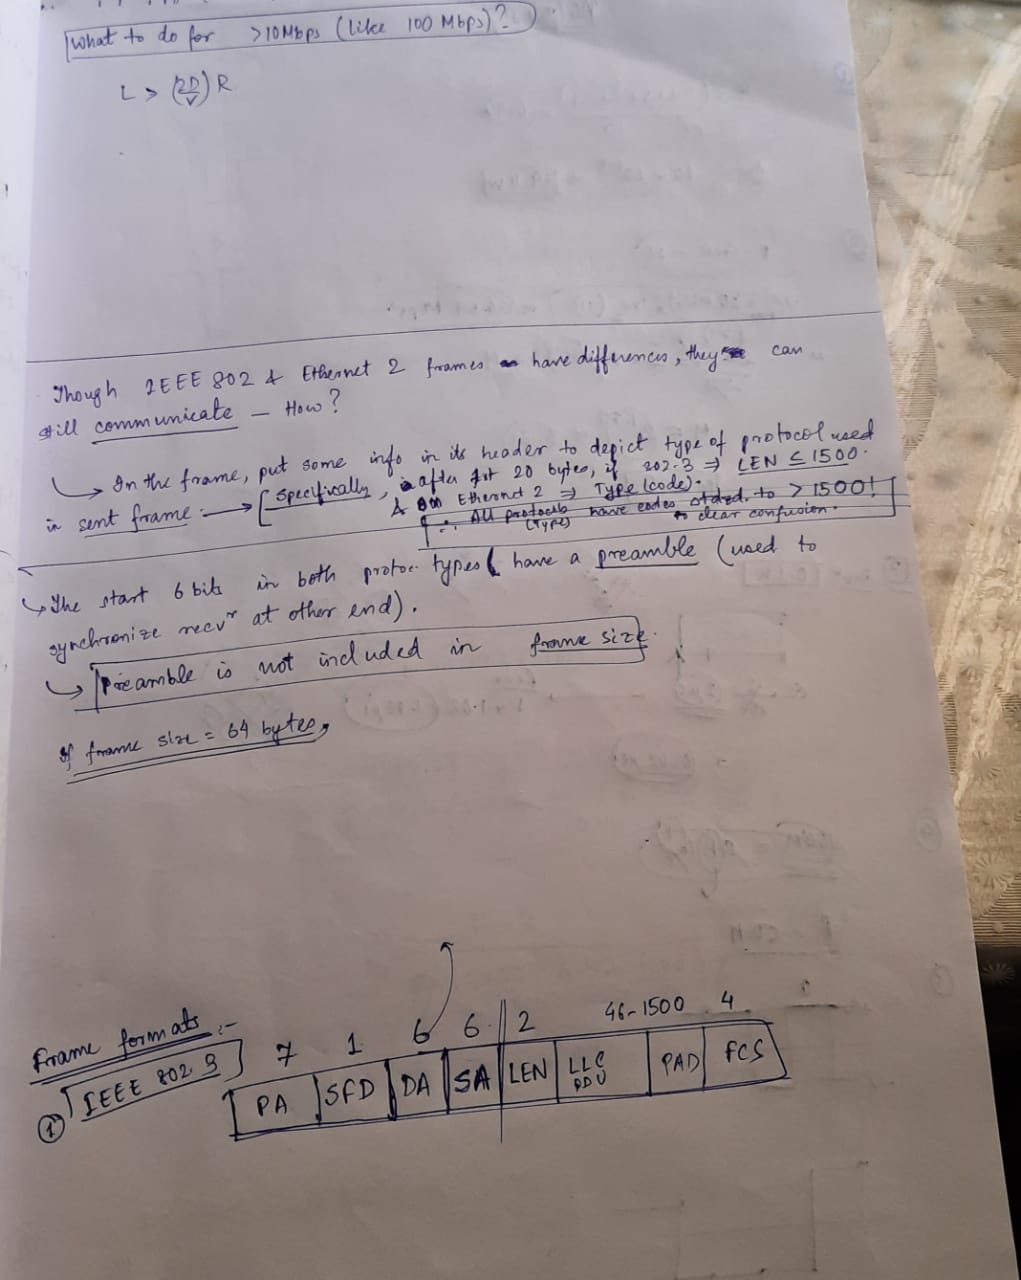 What to do for >10Mbps (like 100 Mbps)?
L > (2D/V) R
Though IEEE 802 & Ethernet 2 frames have differences, they can
still communicate — How?
↳ In the frame, put some info in its header to depict type of protocol used
in sent frame. → [Specifically, after 1st 20 bytes, if 802.3 ⇒ LEN ≤ 1500.
& Ethernet 2 ⇒ Type (code).
∴ All protocols (Types) have codes stdzd. to > 1500!
to clear confusion.
↳ The start 6 bits in both protoc. types have a preamble (used to
synchronize recvr at other end).
↳ Preamble is not included in frame size.
If frame size = 64 bytes,
Frame formats :-
7 1 6 6 2 46-1500 4
① IEEE 802.3 PA SFD DA SA LEN LLC PDU PAD FCS